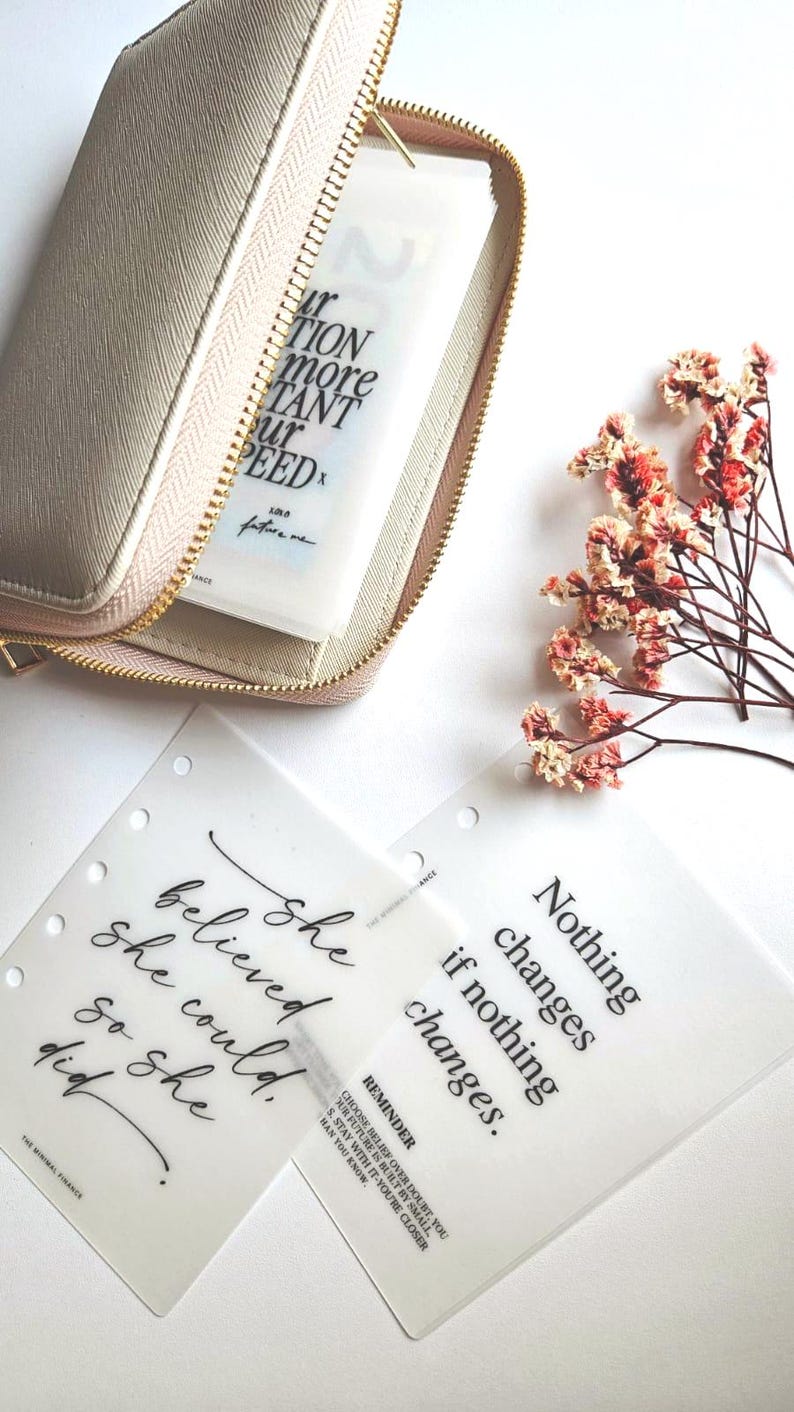 ur
TION
more
TANT
our
PEED x
xoxo
future me
ANCE
she
believed
she could,
so she
did.
THE MINIMAL FINANCE
THE MINIMAL FINANCE
Nothing
changes
if nothing
changes.
REMINDER
CHOOSE BELIEF OVER DOUBT. YOU
OUR FUTURE IS BUILT BY SMALL,
S. STAY WITH IT-YOU'RE CLOSER
HAN YOU KNOW.